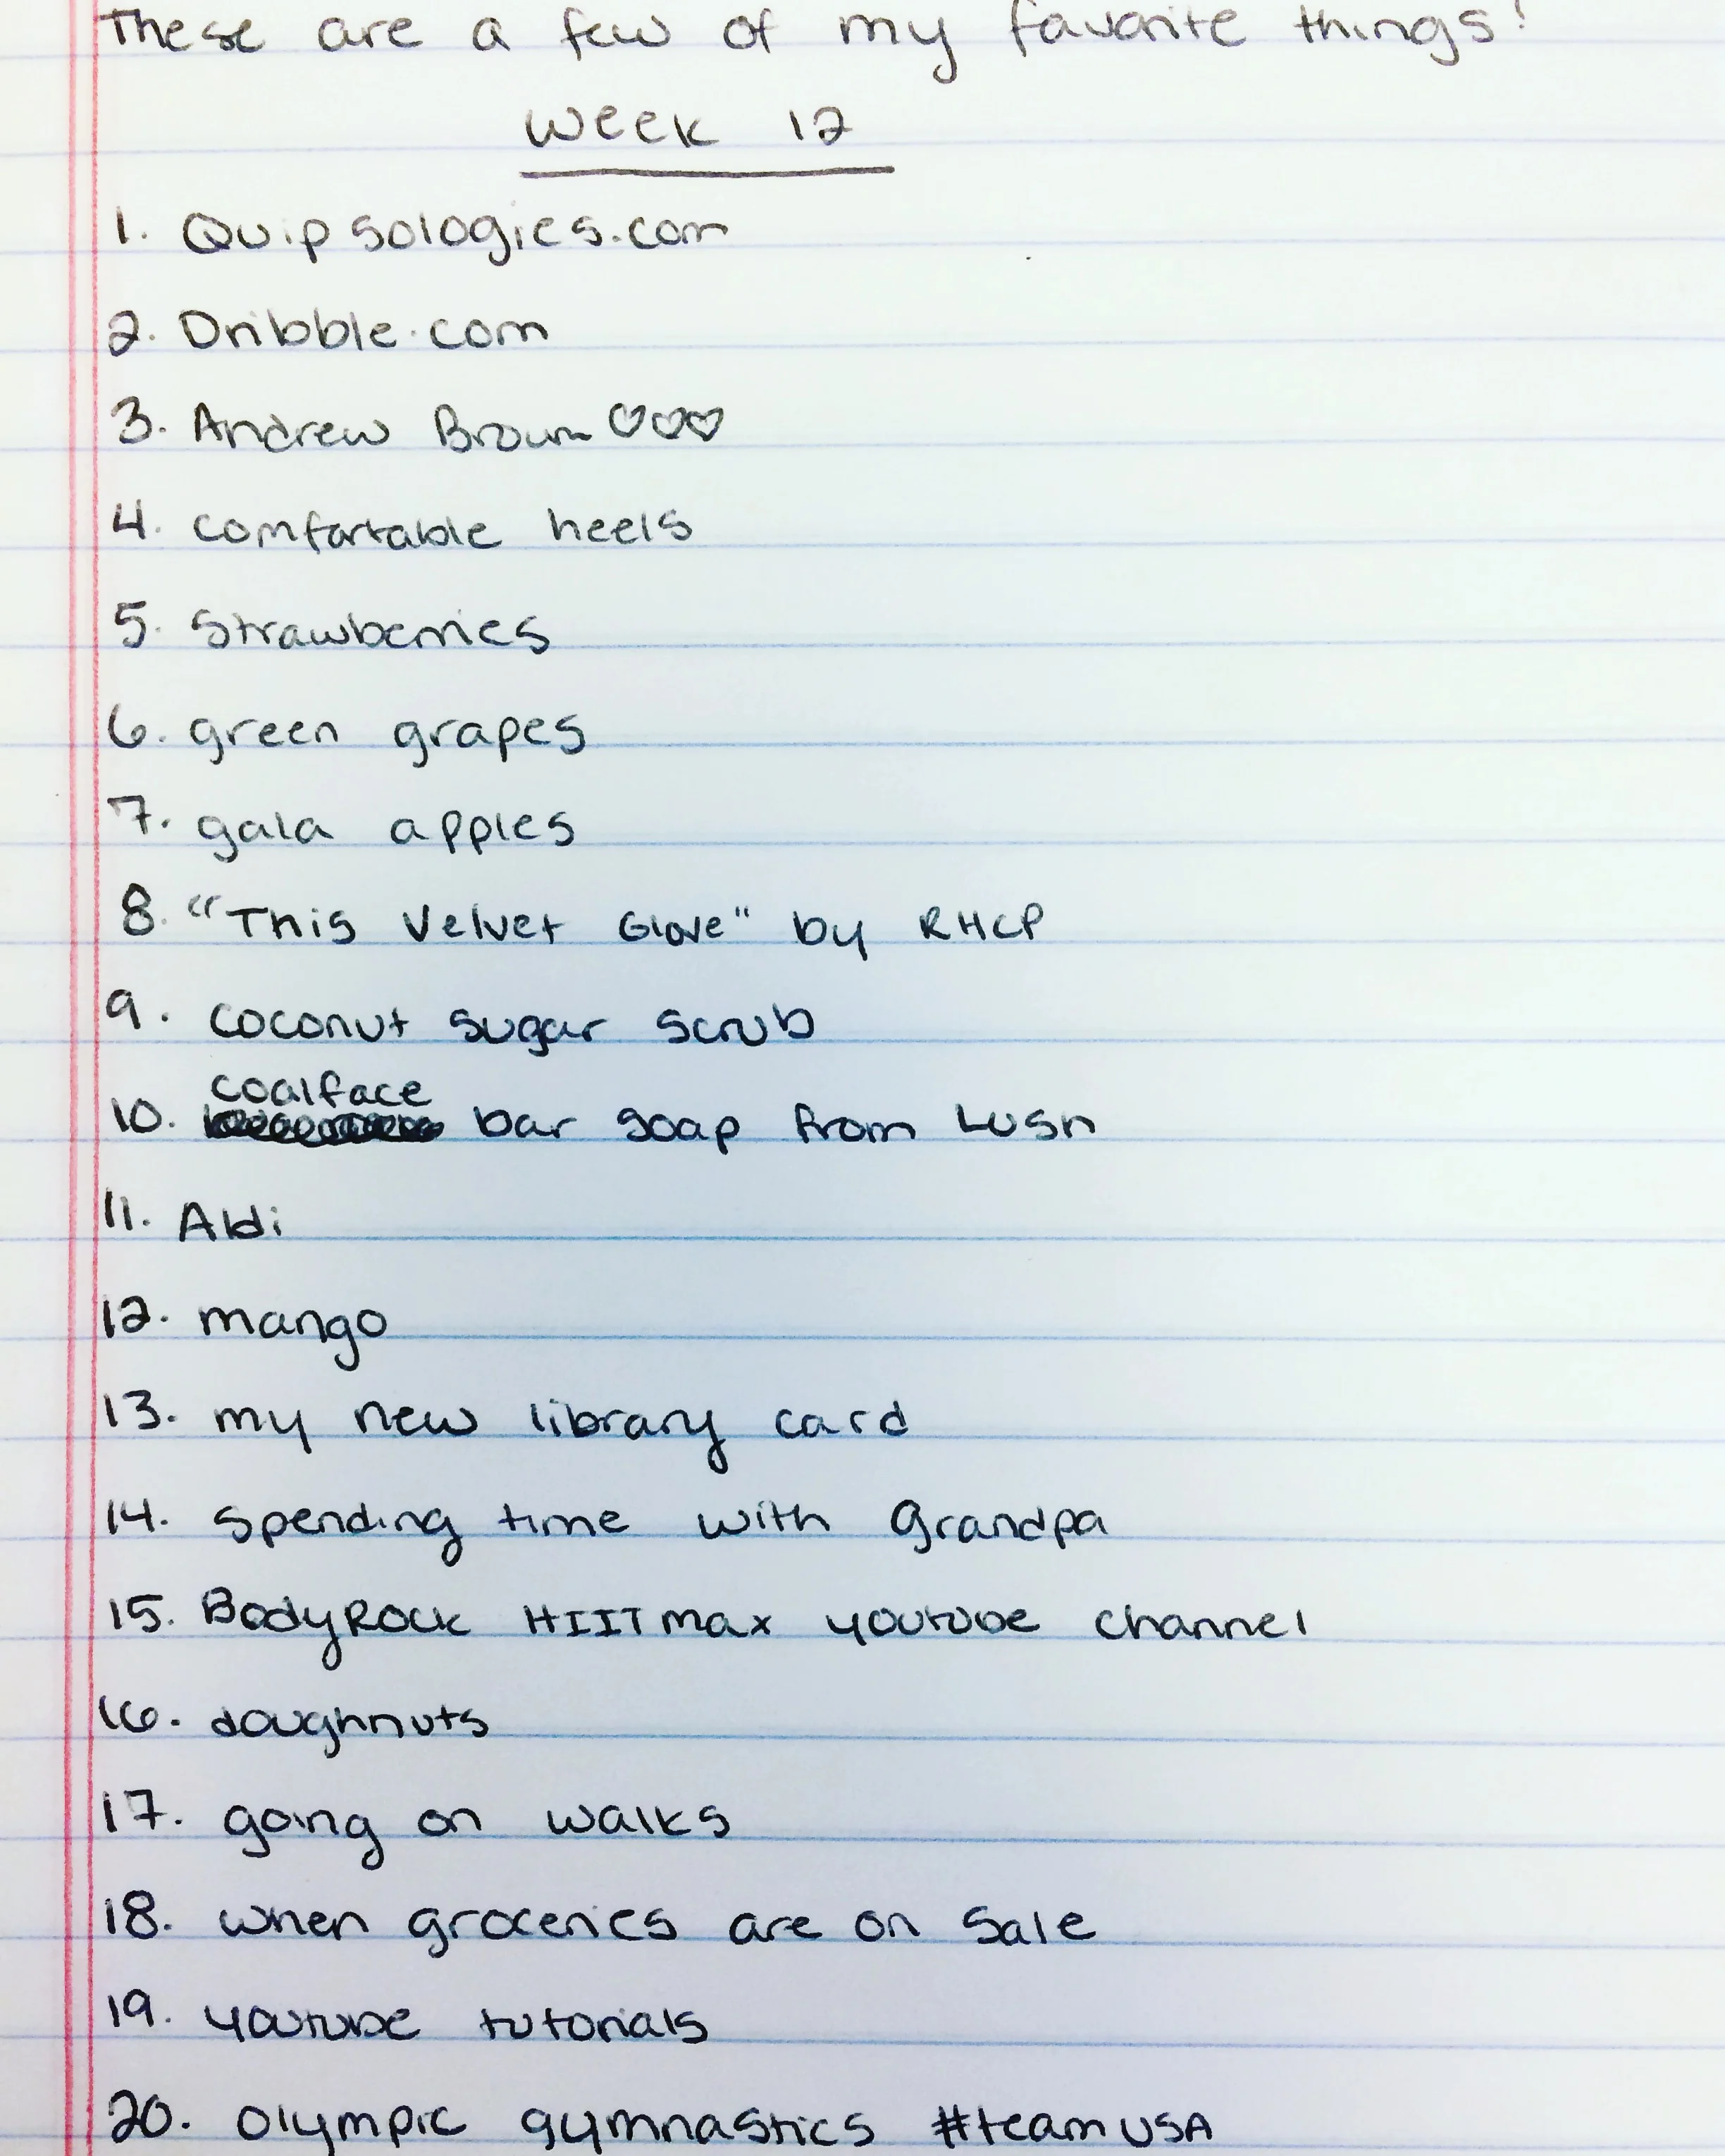 These are a few of my favorite things!
Week 12
1. Quipsologies.com
2. Dribble.com
3. Andrew Brown ♡♡♡
4. comfortable heels
5. Strawberries
6. green grapes
7. gala apples
8. "This Velvet Glove" by RHCP
9. coconut sugar scrub
coalface
10. bar soap from Lush
11. Aldi
12. mango
13. my new library card
14. spending time with Grandpa
15. BodyRock HIIT max youtube channel
16. doughnuts
17. going on walks
18. when groceries are on sale
19. youtube tutorials
20. olympic gymnastics #teamUSA